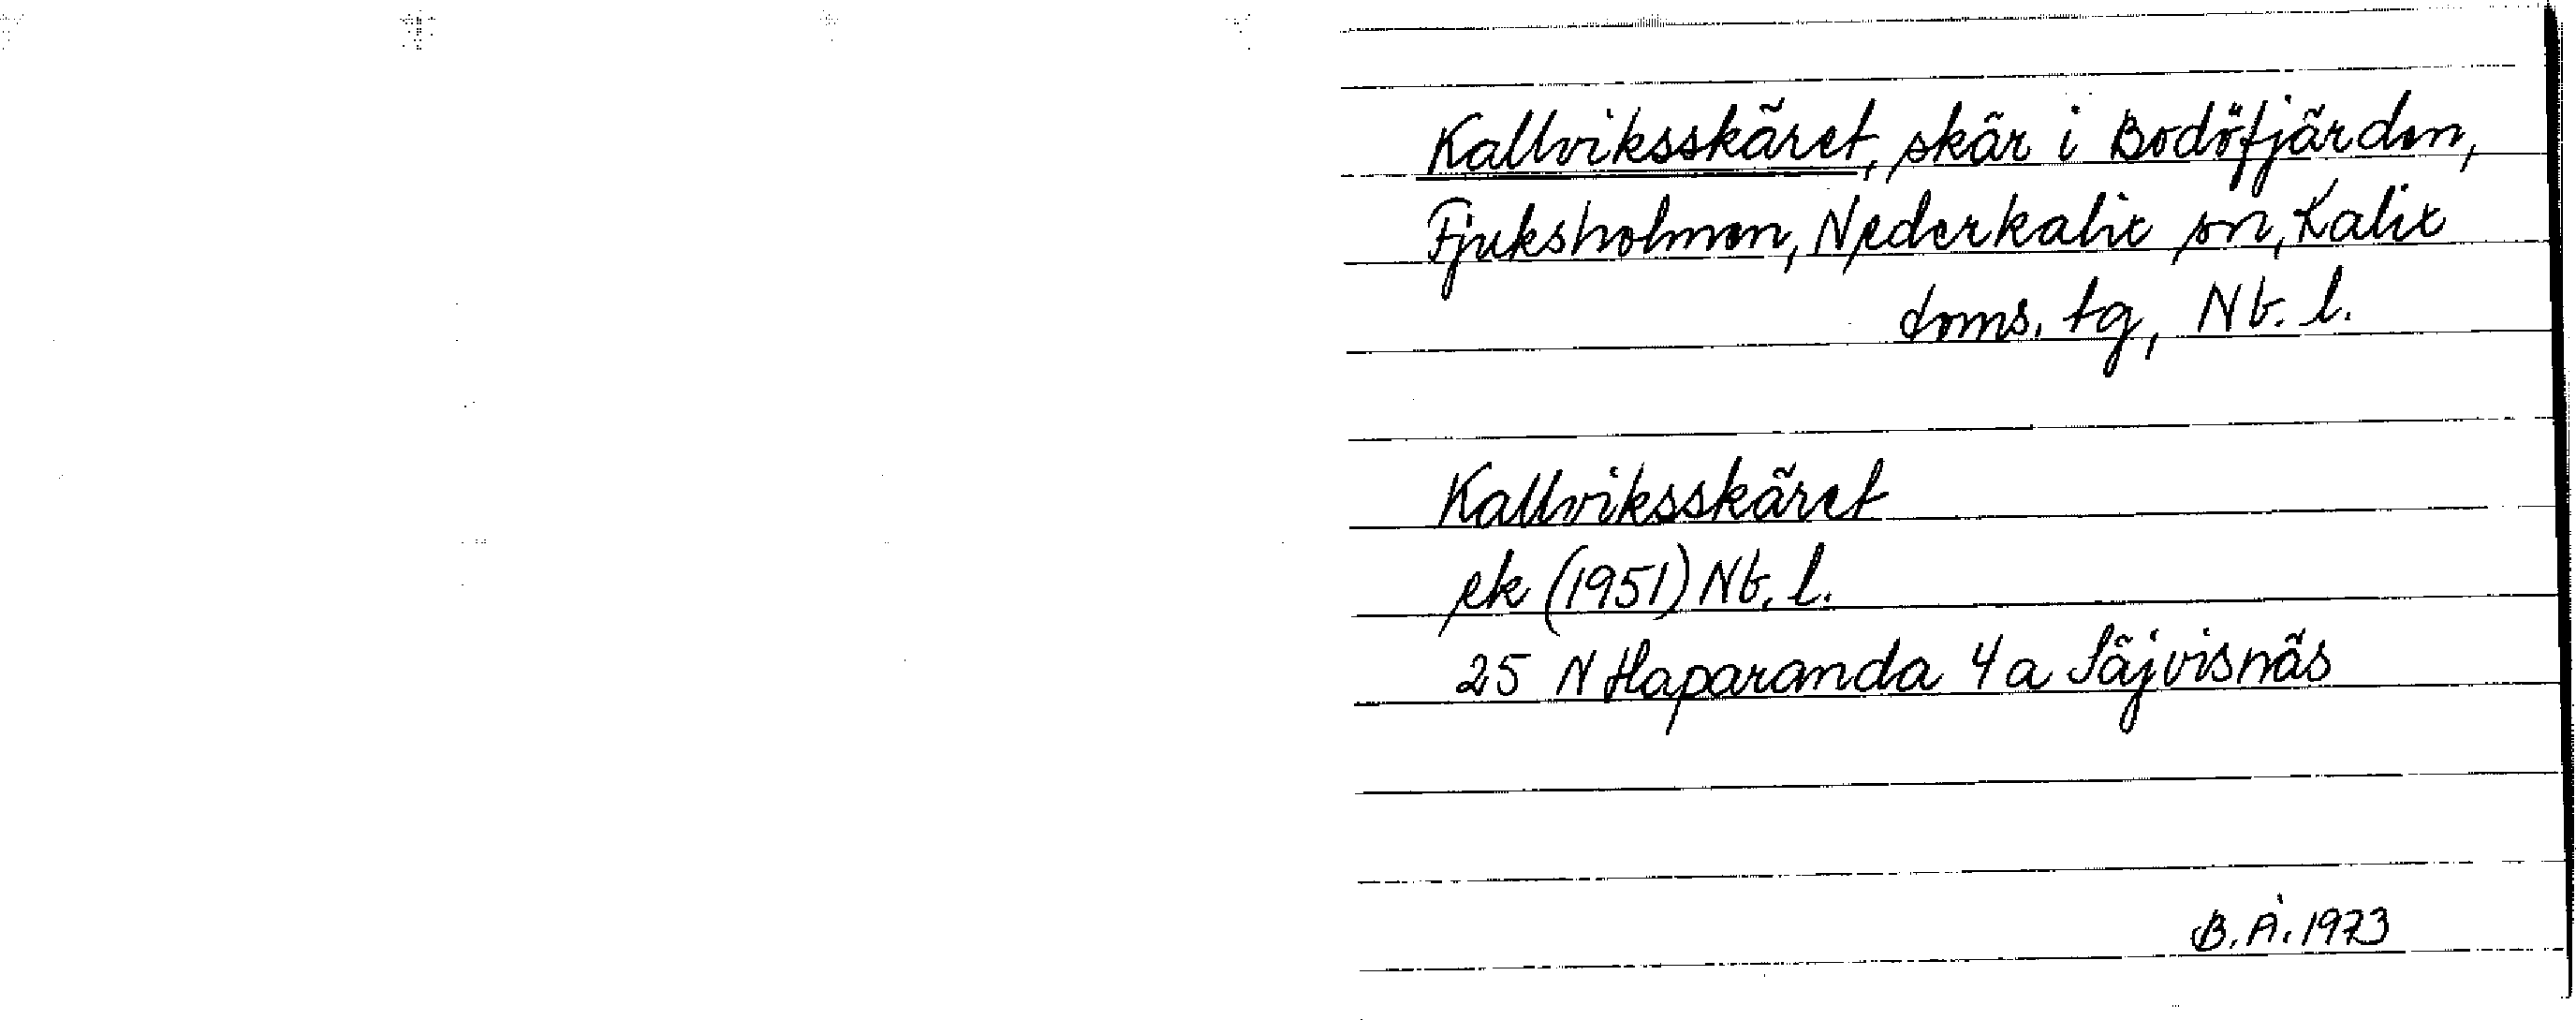 Kallviksskäret, skär i Bodöfjärden,
Fjuksholmen, Nederkalix sn, Kalix
doms. tg, Nb. l.
Kallviksskäret
ek (1951) Nb. l.
25 N Haparanda 4a Säjvisnäs
B. Å. 1973